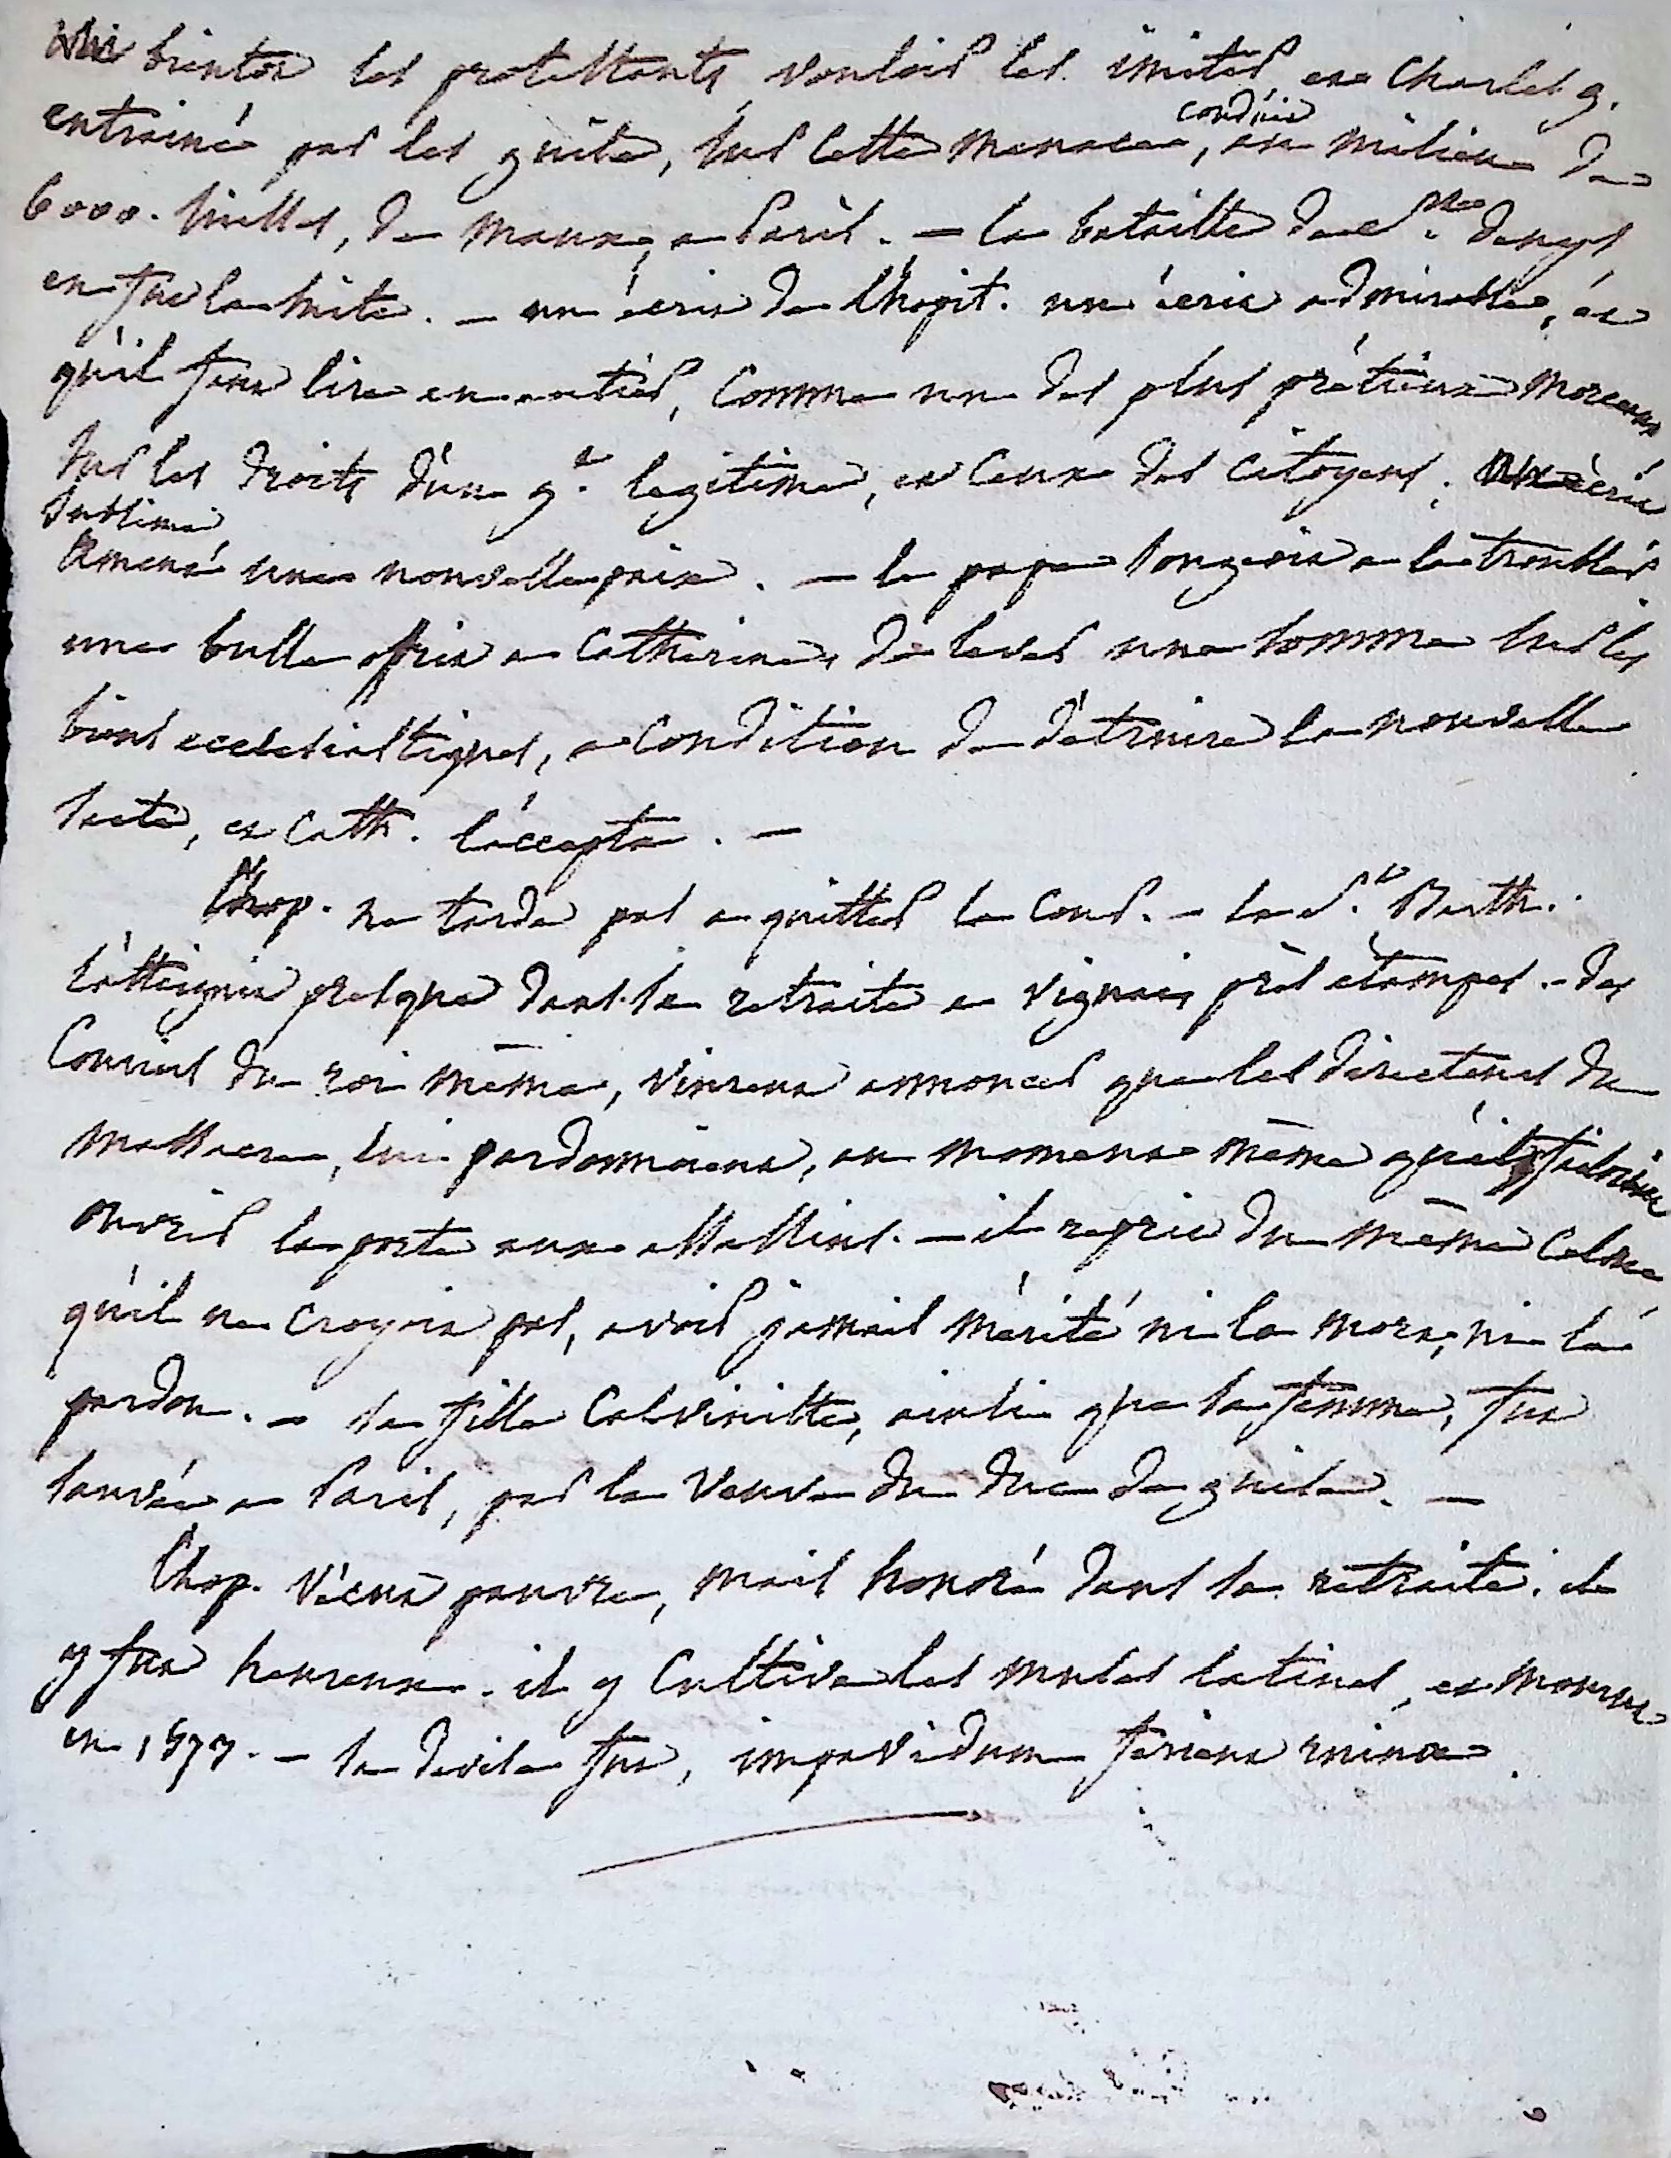 bientot les protestants, vouloir les imiter, et Charles 9.
entrainé par les guise, sur cette menace, conduit au milieu de
6000. suisses, de meaux, a Paris. — la bataille de St. denys
en fut la suite. — un écrit de lhopit. un écrit admirable, et
qu'il faut lire en entier, comme un des plus prétieux morceaux
sur les droits d'un gt. legitime, et ceux des citoyens;
sublime
amena une nouvelle paix. — le pape songeoit a la troubler
une bulle offrit a Catherine, de lever une somme sur les
biens ecclesiastiques, a condition de détruire la nouvelle
secte, et Cath. l'accepta. —
l'hop. ne tarda pas a quitter la cour. — la St. Barth.
l'atteignit presque dans sa retraite a vignai, près étampes. — des
Couriers du roi même, vinrent annoncer que les directeurs du
massacre, lui pardonnoient, au moment même qu'il faisoit
ouvrir la porte aux assassins. — il reprit du même calme
qu'il ne croyoit pas, avoir jamais mérité ni la mort, ni le
pardon. — sa fille Calviniste, ainsi que sa femme, fut
sauvée a Paris, par la veuve du duc de guise. —
l'hop. vécut pauvre, mais honoré dans sa retraite. il
y fut heureux. il y cultiva les muses latines, et mourut
en 1577. — sa devise fut, impavidum ferient ruinae.